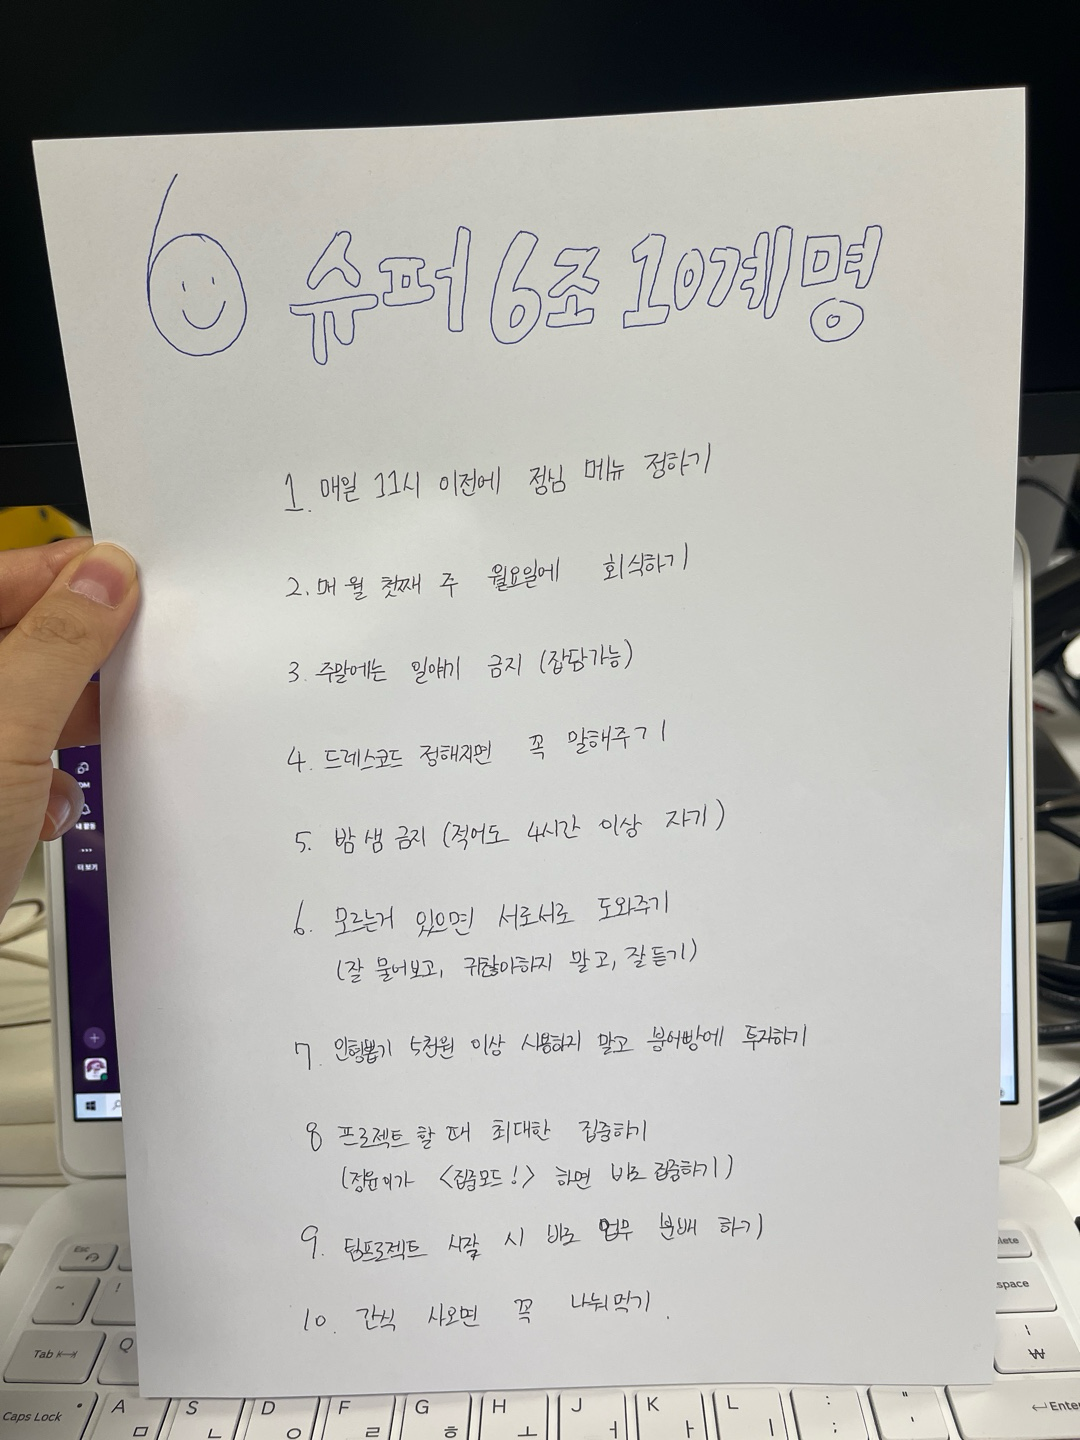 6 슈퍼 6조 10계명
1. 매일 11시 이전에 점심 메뉴 정하기
2. 매월 첫째 주 월요일에 회식하기
3. 주말에는 일얘기 금지 (잡담가능)
4. 드레스코드 정해지면 꼭 말해주기
5. 밤샘금지 (적어도 4시간 이상 자기)
6. 모르는거 있으면 서로서로 도와주기
(잘 물어보고, 귀찮아하지 말고, 잘 듣기)
7. 인형뽑기 5천원 이상 사용하지 말고 붕어빵에 투자하기
8 프로젝트 할 때 최대한 집중하기
(정윤이가 <집중모드!> 하면 바로 집중하기)
9. 팀프로젝트 시작 시 바로 업무 분배 하기
10. 간식 사오면 꼭 나눠먹기.
DM
내 활동
더 보기
Esc
~
!
Tab
Q
Caps Lock
A ㅁ
S ㄴ
D ㅇ
F ㄹ
G ㅎ
H ㅗ
J ㅓ
K ㅏ
L ㅣ
: ;
" '
Enter
\ ₩
space
lete